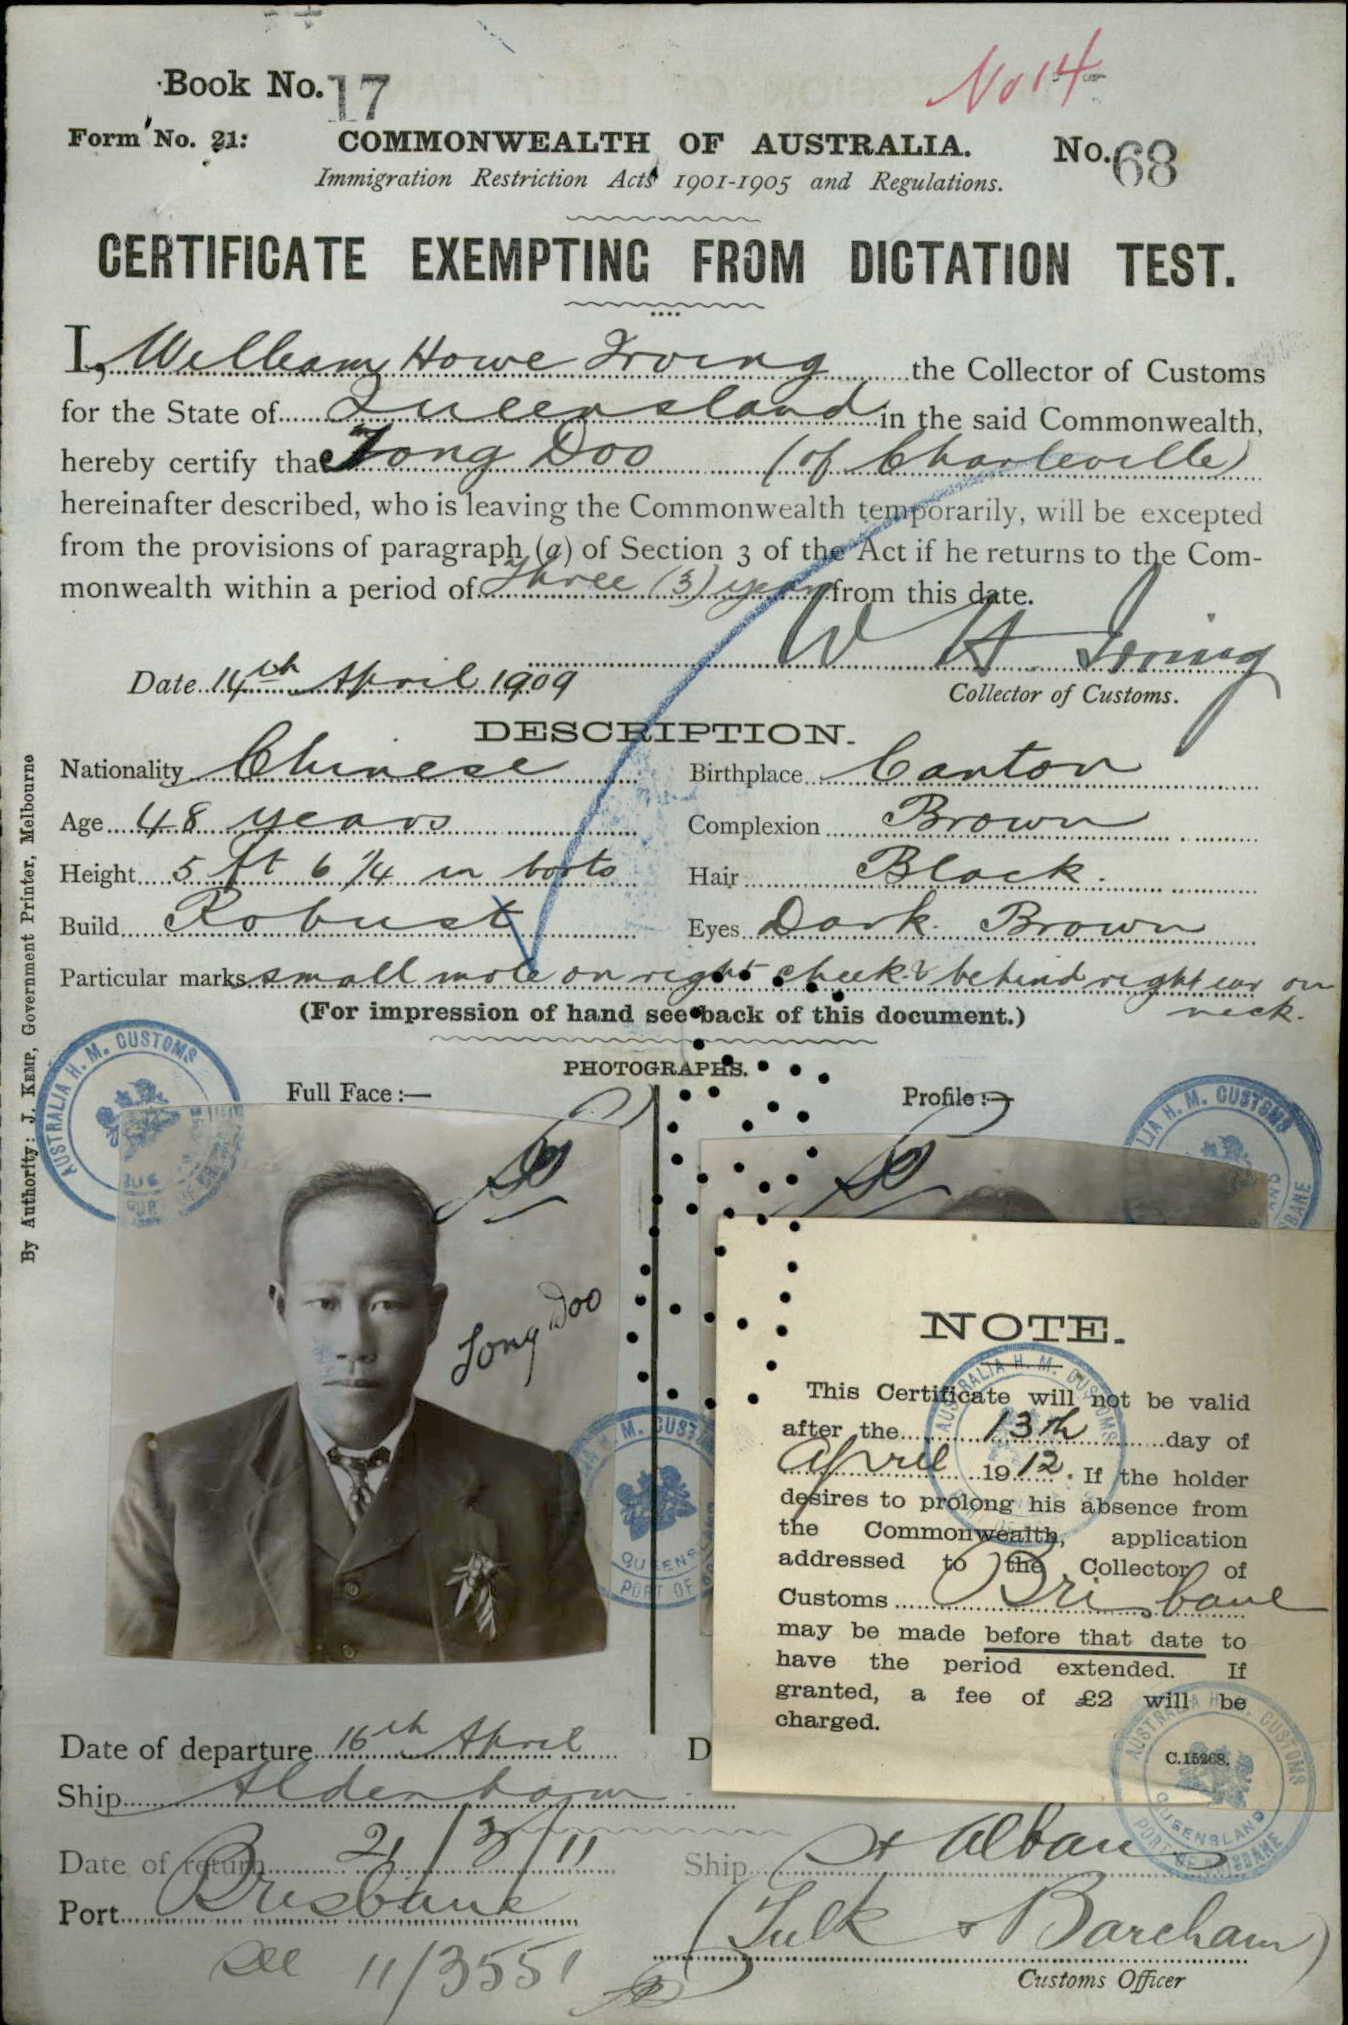 Book No. 17
No 14
Form No. 21:
COMMONWEALTH OF AUSTRALIA.
No. 68
Immigration Restriction Acts 1901-1905 and Regulations.
CERTIFICATE EXEMPTING FROM DICTATION TEST.
I, William Howe Irving the Collector of Customs
for the State of Queensland in the said Commonwealth,
hereby certify that Tong Doo (of Charleville)
hereinafter described, who is leaving the Commonwealth temporarily, will be excepted
from the provisions of paragraph (a) of Section 3 of the Act if he returns to the Com-
monwealth within a period of Three (3) years from this date.
W H Irving
Date 14th April 1909
Collector of Customs.
DESCRIPTION.
Nationality Chinese
Birthplace Canton
Age 48 years
Complexion Brown
Height 5 ft 6 1/4 in boots
Hair Black.
Build Robust
Eyes Dark Brown
Particular marks small mole on right cheek & behind right ear on
neck.
(For impression of hand see back of this document.)
PHOTOGRAPHS.
Full Face :—
Profile :—
Tong Doo
AUSTRALIA H. M. CUSTOMS
NOTE.
This Certificate will not be valid
after the 13th day of
April 1912. If the holder
desires to prolong his absence from
the Commonwealth, application
addressed to the Collector of
Customs Brisbane
may be made before that date to
have the period extended. If
granted, a fee of £2 will be
charged.
C.15268.
AUSTRALIA H. M. CUSTOMS
QUEENSLAND
PORT OF BRISBANE
Date of departure 16th April
D
Ship Aldenham
Date of return 21/3/11
Ship St Albans
Port Brisbane
(Tulk & Barcham)
See 11/3551
Customs Officer
By Authority: J. KEMP, Government Printer, Melbourne